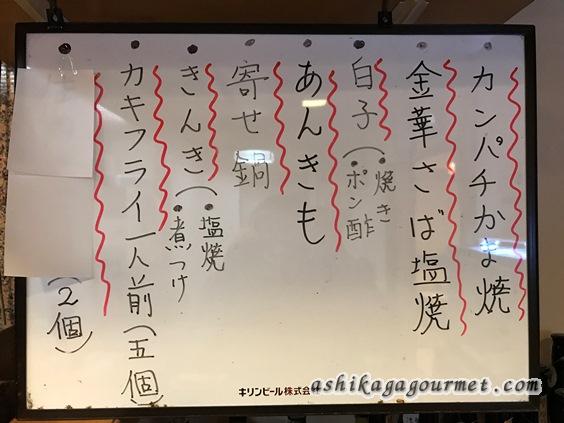 カンパチかま焼
金華さば塩焼
白子(・焼き
・ポン酢
あんきも
寄せ鍋
きんき(・塩焼
・煮つけ
カキフライ一人前(五個)
(2個)
キリンビール株式会社
ashikagagourmet.com